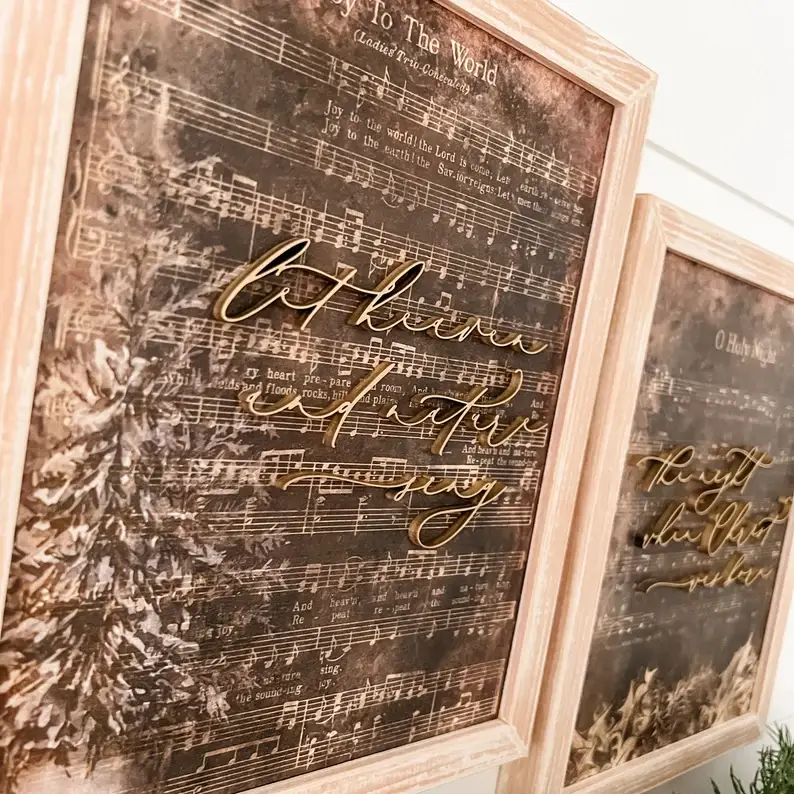 y To The World
(Ladies Trio-Concealed)
Joy to the world! the Lord is come, Let earth re-ceive her
Joy to the earth! the Sav-ior reigns: Let men their songs em-
let heaven
ry heart pre-pare Him room, And
While fields and floods, rocks, hill and plains
and nature
And heav'n and na-ture
Re-peat the sound-ing
sing
And heav'n, and heav'n and na-ture sing,
Re-peat, re-peat the sound-ing joy,
joy.
na-ture sing.
the sound-ing joy,
O Holy Night
the night
when Christ
was born